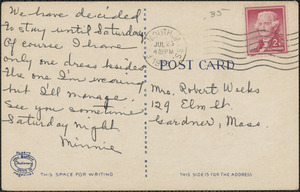 We have decided
to stay until Saturday.
Of course I have
only one dress besides
the one I'm wearing
but I'll manage.
See you sometime
Saturday night
Minnie
THIS SPACE FOR WRITING
35
JUL 23
PM
2¢
POST CARD
Mrs. Robert Weeks
129 Elm St.
Gardner, Mass
THIS SIDE IS FOR THE ADDRESS